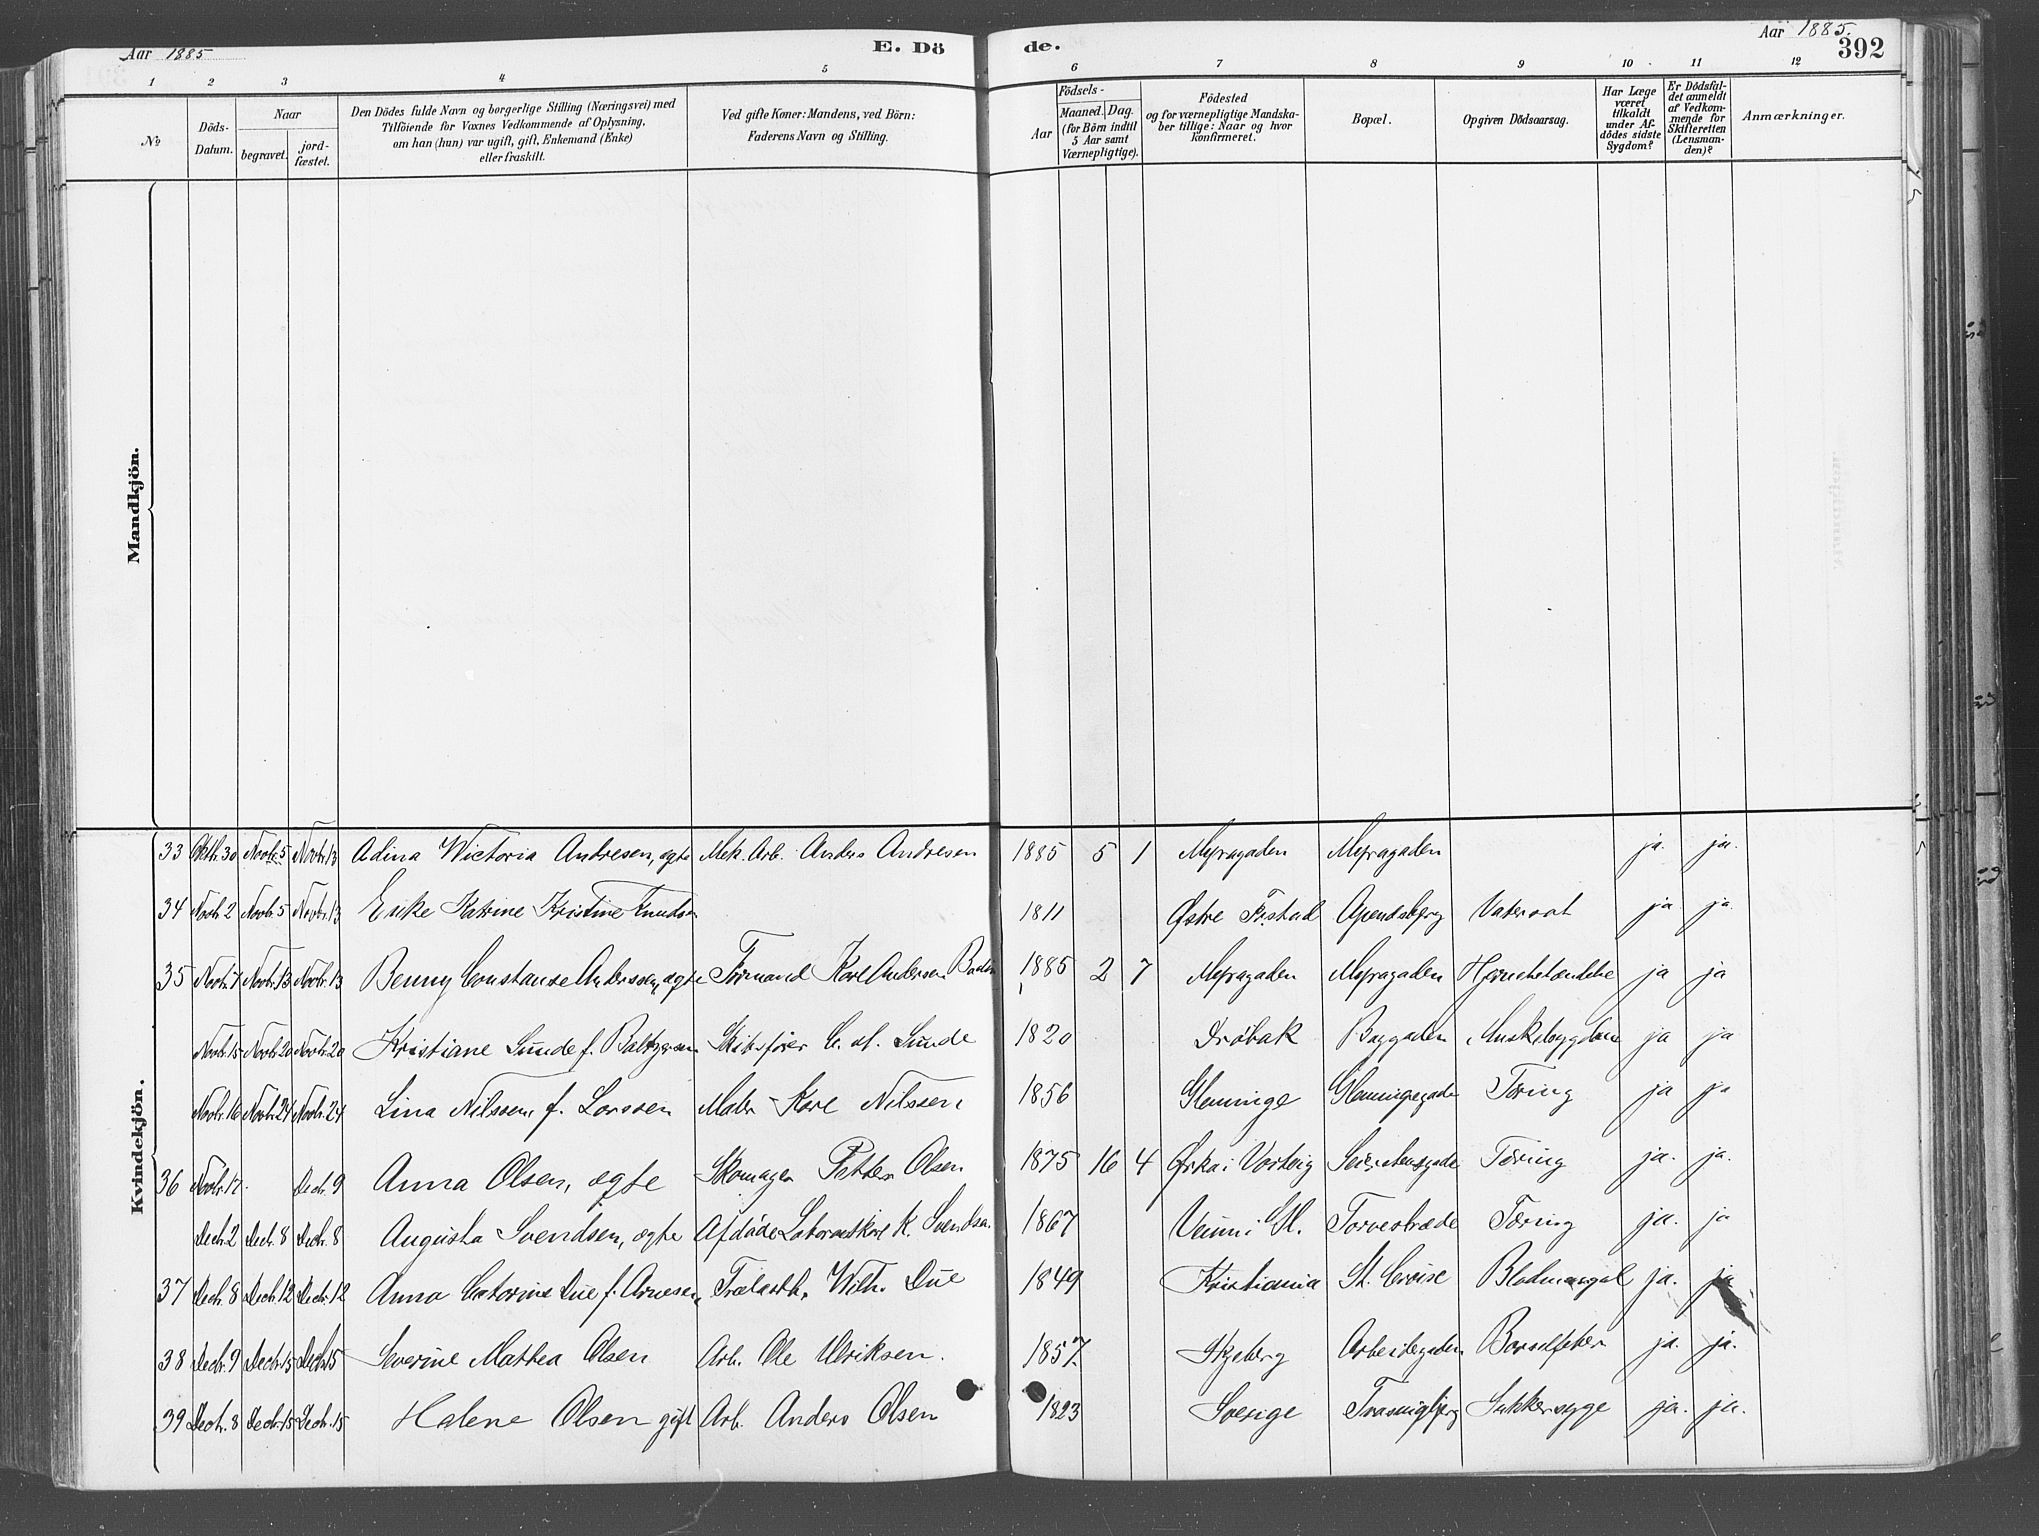 Aar 1885
E. Dö
de.
Aar 1885.
392
1 2 3 4 5 6 7 8 9 10 11 12
No
Döds-
Datum.
Naar
begravet.
jord-
fæstet.
Den Dödes fulde Navn og borgerlige Stilling (Næringsvei) med
Tilföiende for Voxnes Vedkommende af Oplysning,
om han (hun) var ugift, gift, Enkemand (Enke)
eller fraskilt.
Ved gifte Koner: Mandens, ved Börn:
Faderens Navn og Stilling.
Födsels-
Aar
Maaned. Dag.
(for Börn indtil
5 Aar samt
Værnepligtige).
Födested
og for værnepligtige Mandska-
ber tillige: Naar og hvor
konfirmeret.
Bopæl.
Opgiven Dödsaarsag.
Har Læge
været
tilkaldt
under Af-
dödes sidste
Sygdom?
Er Dödsfal-
det anmeldt
af Vedkom-
mende for
Skifteretten
(Lensman-
den)?
Anmærkninger.
Mandkjön.
Kvindekjön.
33 Oktb. 30 Novbr. 5 Novbr. 13 Adina Wictoria Andresen, ægte Mek. Arb. Anders Andresen 1885 5 1 ja. ja.
34 Novbr. 2 Novbr. 5 Novbr. 13 Katrine Kristine Knudsen 1811 Østre F.stad Apenesberg ja ja.
35 Novbr. 7 Novbr. 13 Novbr. 13 Benny Constanse Anderssen, ægte Formand Karl Andersen 1885 2 7 ja ja
Novbr. 15 Novbr. 20 Novbr. 20 Kristiane Sunde f. Baltzersen Skibsfører Sunde 1820 Drøbak Baggaden ja ja
Novbr. 16 Novbr. 24 Novbr. 24 Lina Nilssen, f. Larssen Maler Karl Nilssen 1856 Glemminge Glemmingegaden Tæring ja ja
36 Novbr. 17. Decbr. 9 Anna Olsen, ægte Skomager Petter Olsen 1875 16 4 Tæring ja. ja.
Decbr. 2 Decbr. 8 Decbr. 8 Augusta Svendsen, ægte Afdøde K. Svendsen 1867 Veum i Gl. Torvestræde Tæring ja. ja
37 Decbr. 8 Decbr. 12 Decbr. 12 Anna Catorine Due f. Arnesen, Wilh. Due 1849 Kristiania St. Croise Blodmangel ja. ja
38 Decbr. 9 Decbr. 15 Decbr. 15 Severine Mathea Olsen Arb. Ole Ulriksen. 1857. Skjeberg Arbeidergaden Barselfeber ja. ja.
39 Decbr. 8 Decbr. 15 Decbr. 15 Halene Olsen gift Arb. Anders Olsen 1823 Sverige Sukkersyge ja. ja.